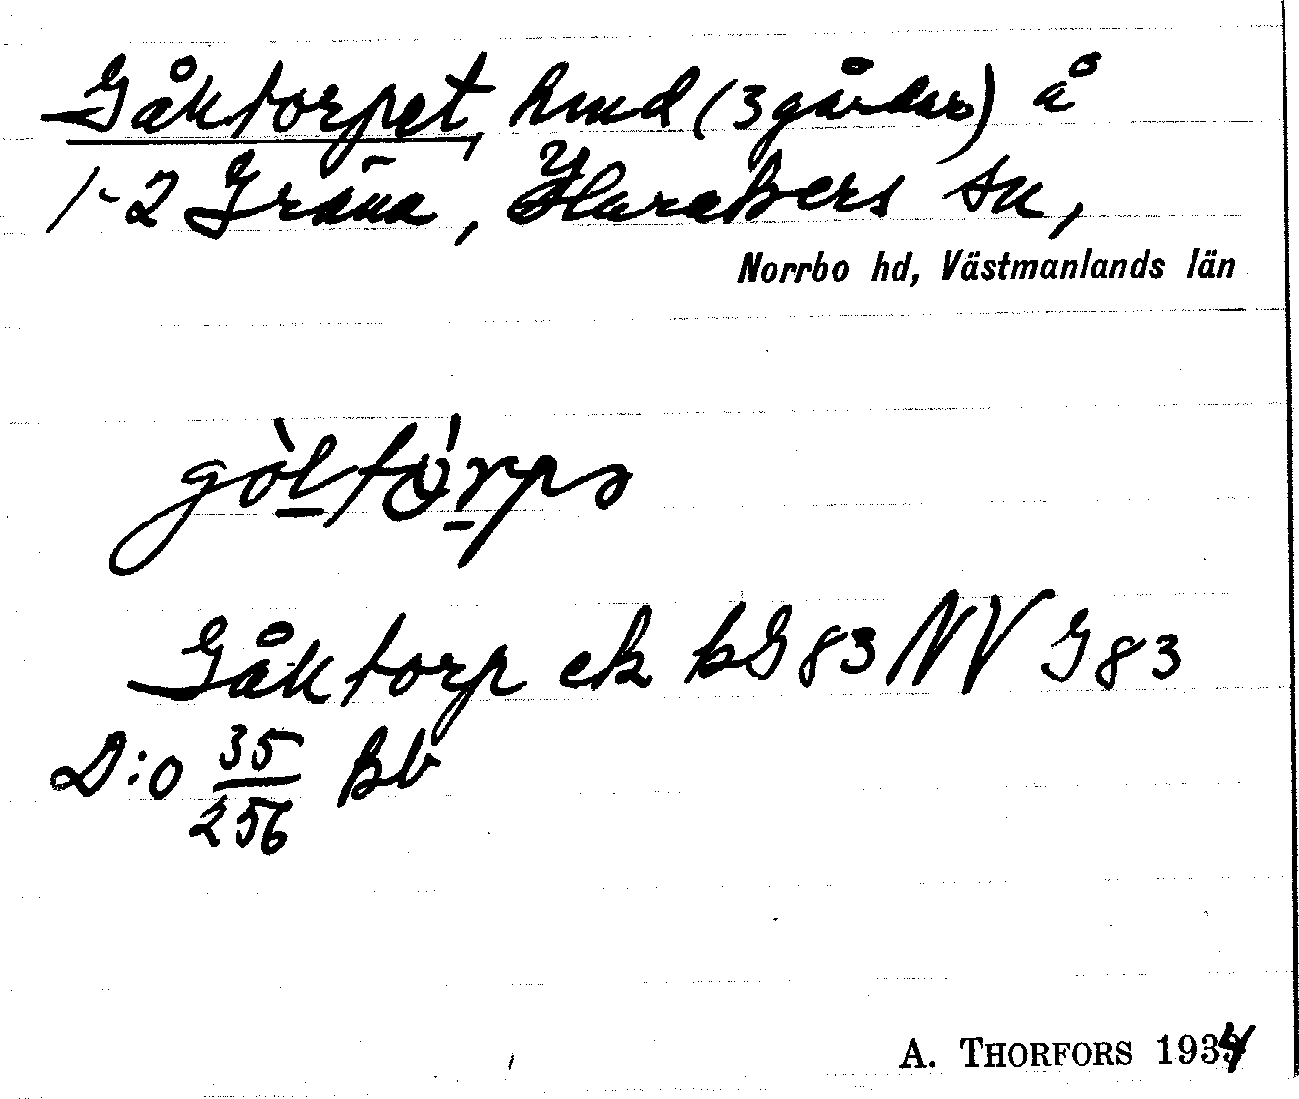 Gåktorpet, hmd (3 gårdar) å
1-2 Gräna, Haraker s sn,
Norrbo hd, Västmanlands län
Gåktorp ek bG 83 NV G 83
D:o 35/256 Bb
A. THORFORS 1934